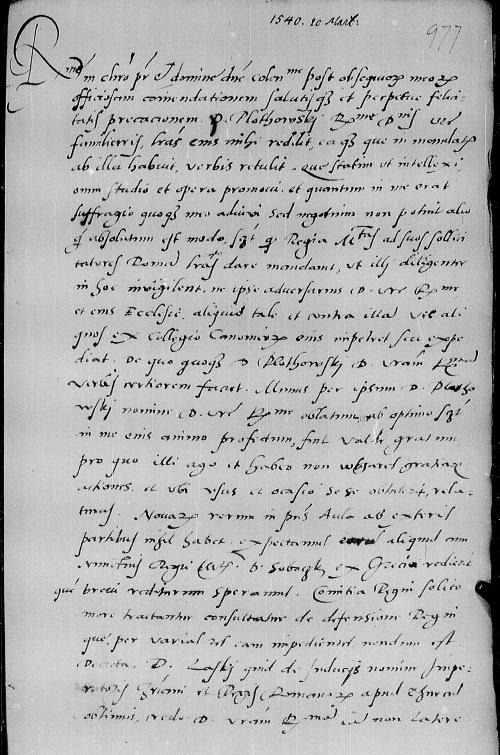 1540. 10 Mart:
977
R me in chro pr et domine dne colen me post obsequiorum meorum
officiosam comendationem salutisque et perpetue felici
tatis precacionem. D. Plothowskj R me D nis vre
familiaris, lras eius mihi reddidit, ea que in mandatis
ab illa habuit, verbis retulit. Que statim ut intellexi,
omni studio et opera promovi et quantum in me erat
suffragio quoque meo adiuvi sed negotium non potuit alio
absolutum est modo, Regia M tas ad suos sollici
tatores Romam lras dare mandavit, ut illj diligenter
in hoc invigilent, ne ipse adversarius D. vre R me
et eius Ecclesie, aliquid tale et contra illam vel ali
quos ex Collegio Canonicorum eius impetret seu expe
diat. De quo quoque D Plothowskj D. vram R mam
verbis certiorem faciet. Munus per ipsum D. Plotho
wskj nomine D. vre R me oblatum, ab optimo
in me eius animo profectum, fuit valde gratum
pro quo illi ago et habeo non gratiarum
actiones, et ubi usus et ocasio se se obtulerit, rela
turus. Novarum rerum in Aula ab exteris
partibus nihil habet. expectamus aliquid cum
Nuncius Regius D. Soboczkj ex Grecia redierit
quem brevi rediturum speramus. Comitia Regni solito
more tractantur consultatur de defensione Regni
que per varias res cum impedientes nondum est
D. Laskj quid de Inducijs nomine Impe
ratoris et Regis Romanorum apud Thurcas
credo D. vram R mam non latere